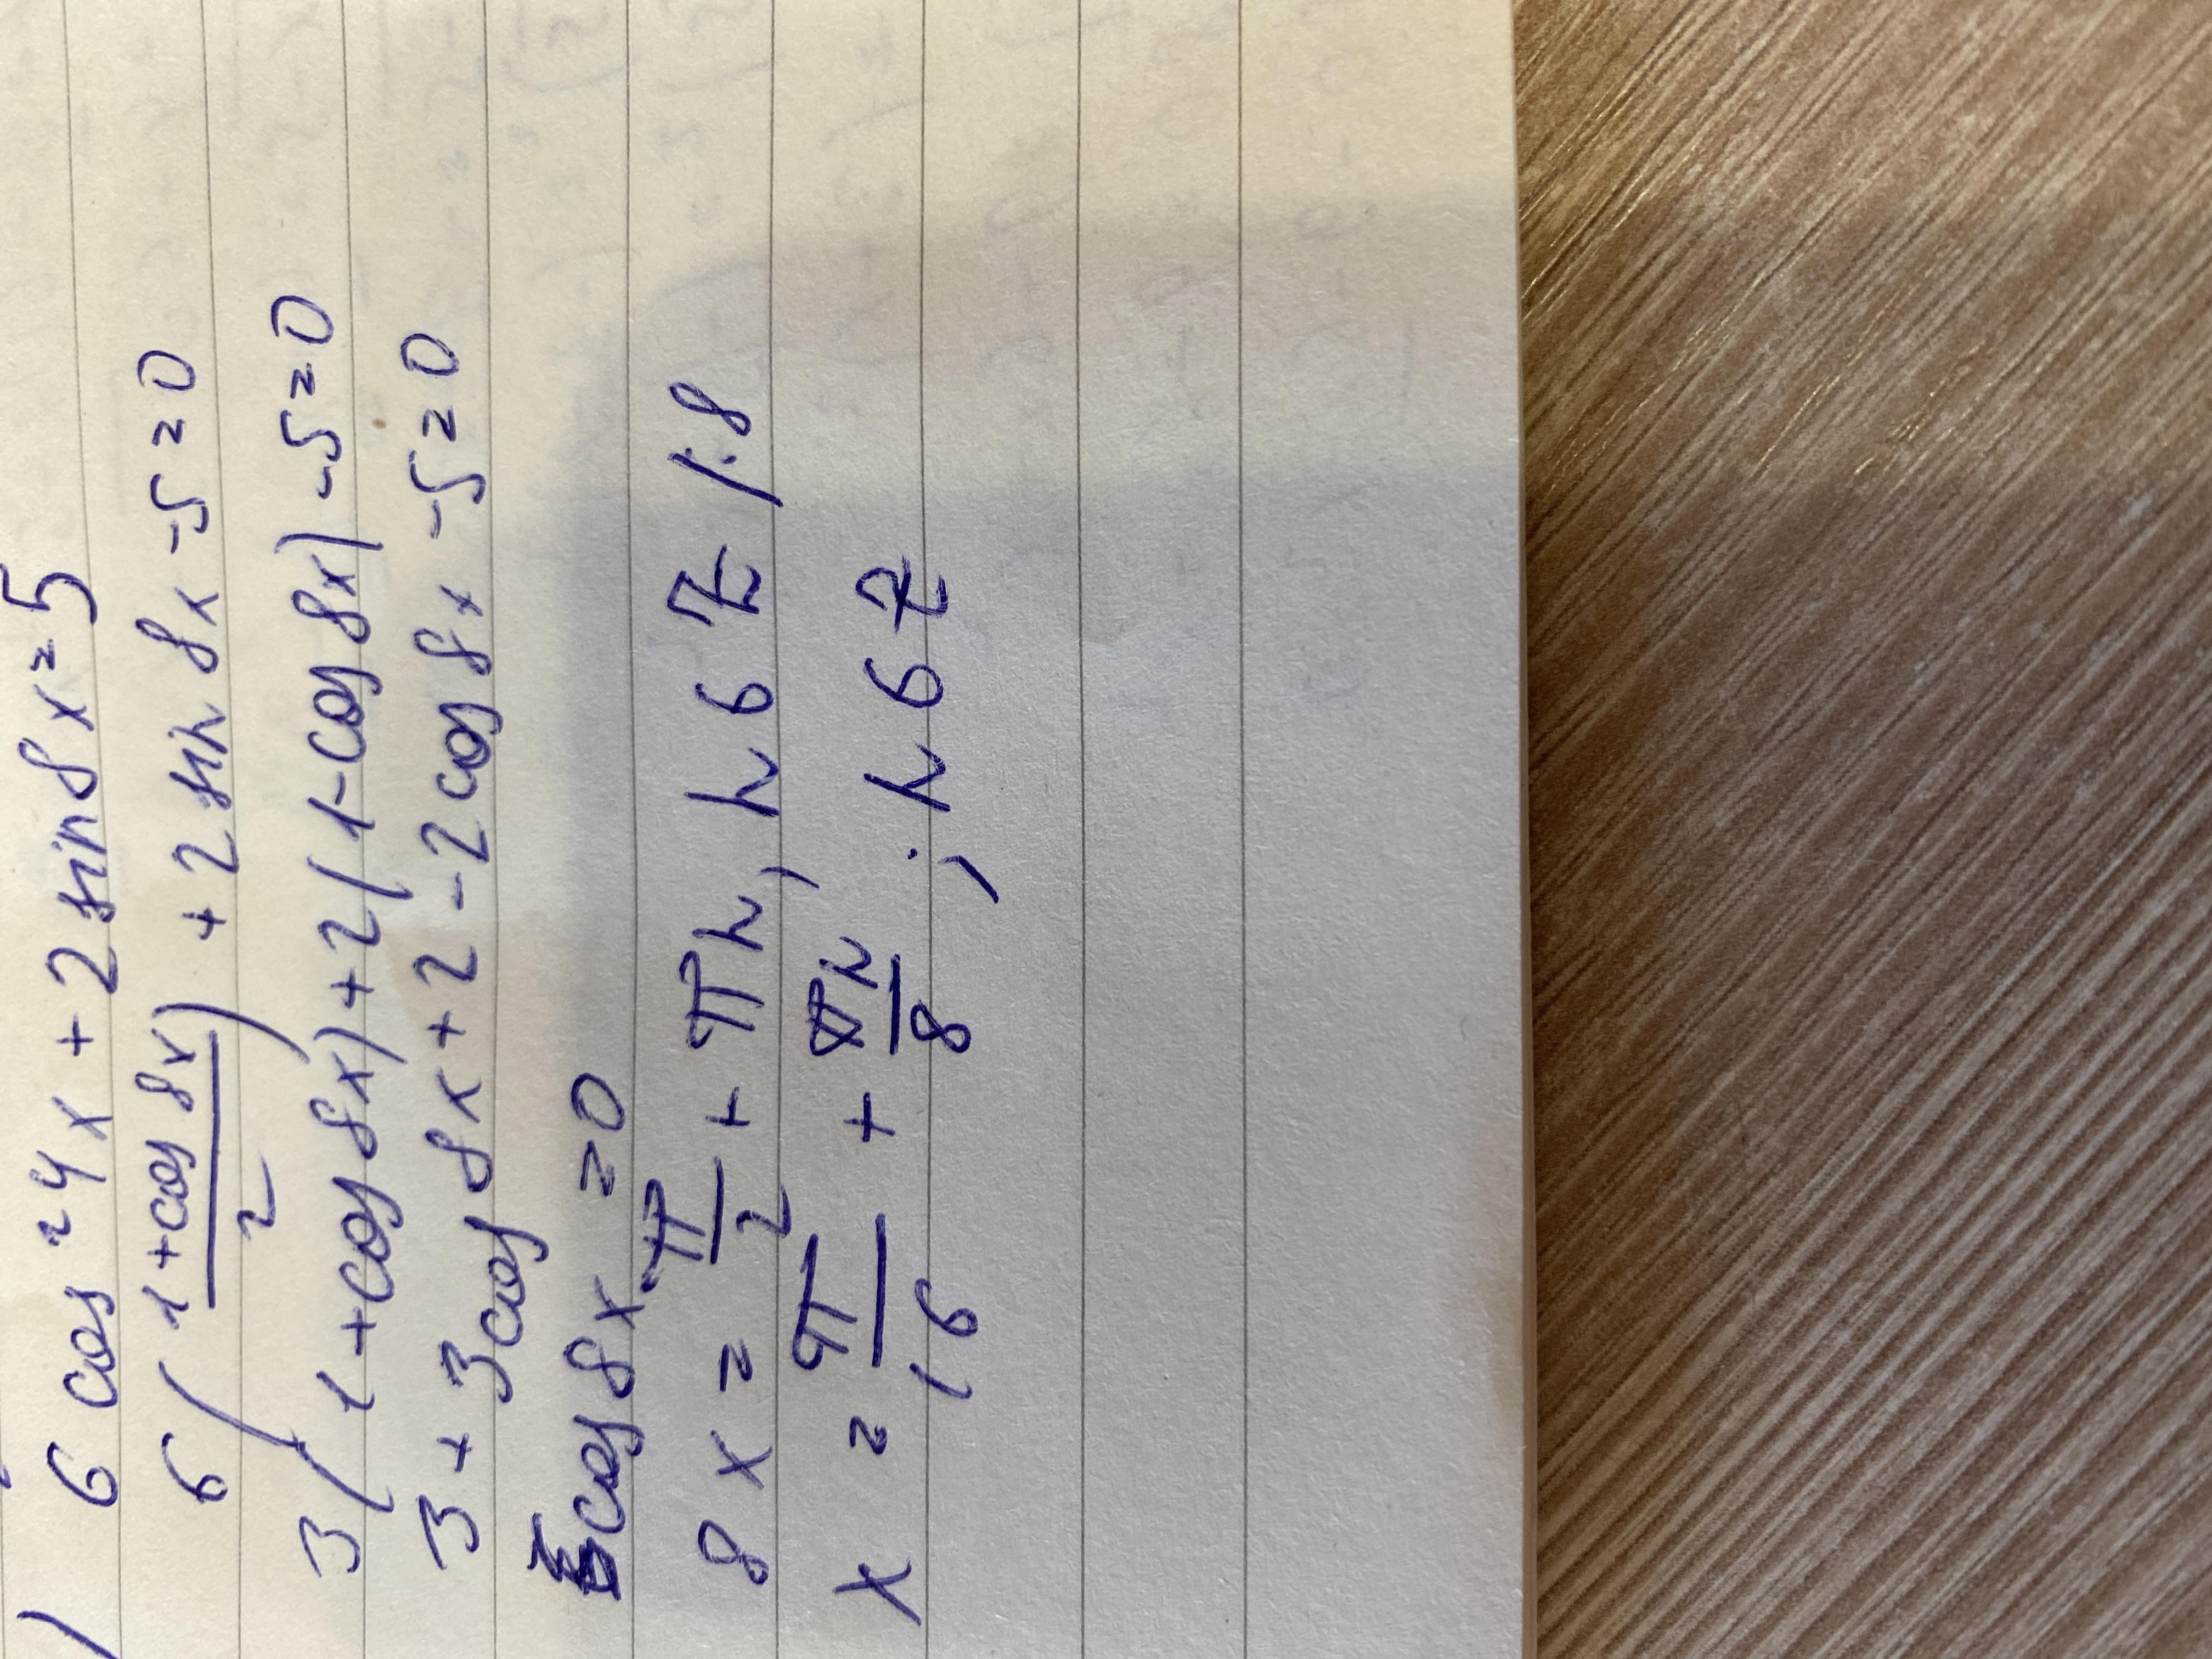 ) 6 cos²4x + 2sin8x=5
6( (1+cos 8x)/2 ) + 2 sin 8x -5=0
3(1+cos8x)+2(1-cos8x)-5=0
3+3cos8x+2-2cos8x-5=0
cos8x=0
8x = π/2 + πn, n∈Z /:8
x = π/16 + πn/8 ; n∈Z